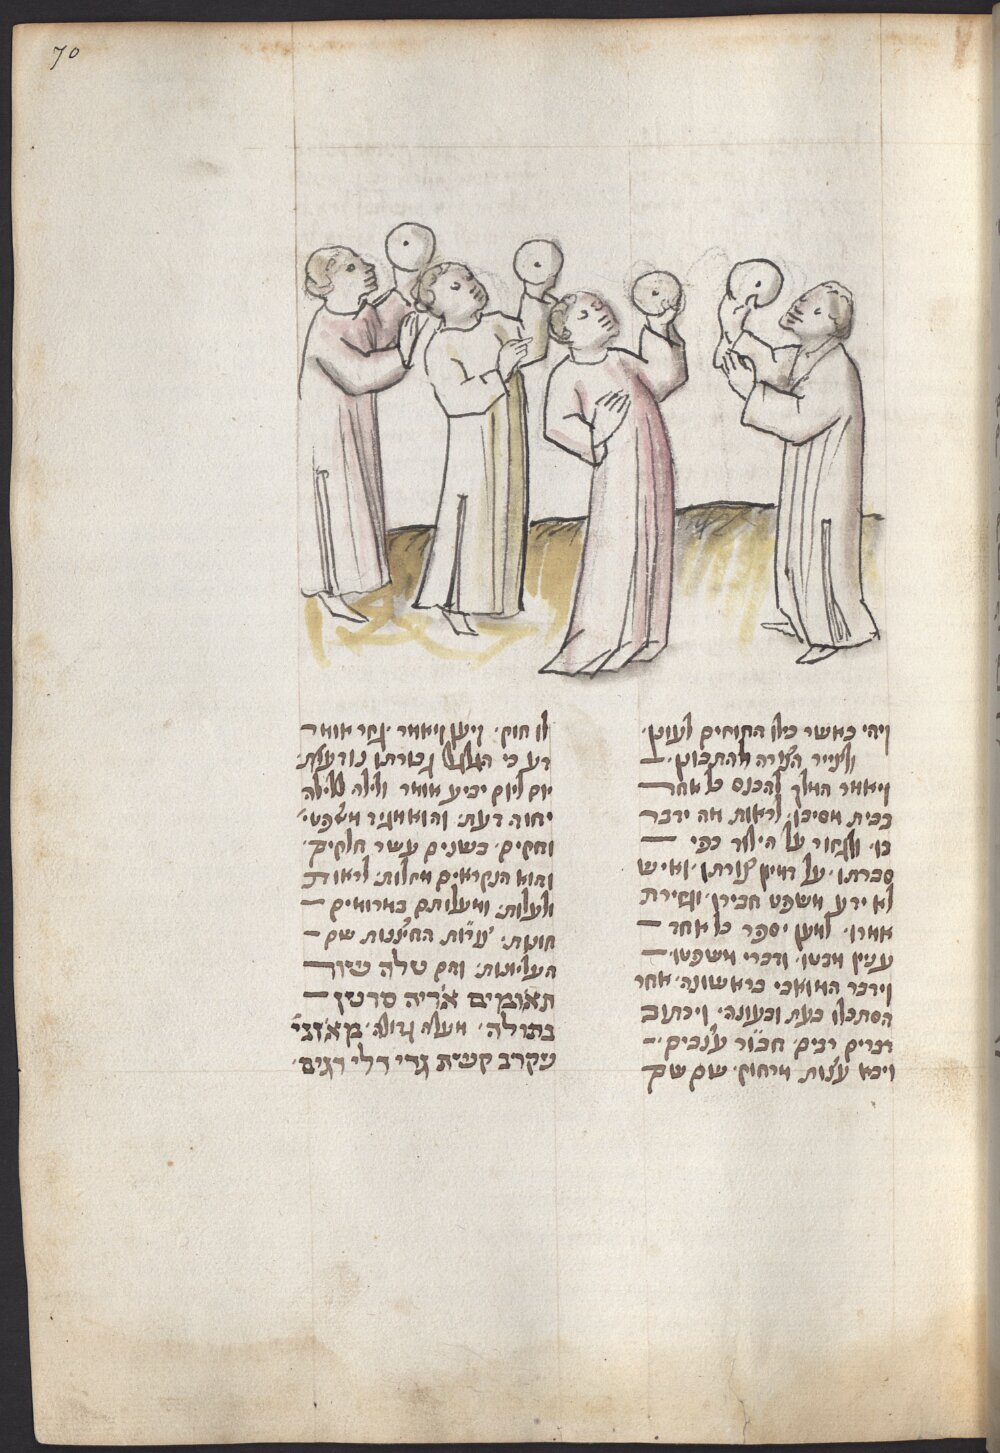 70
ויהי כאשר כלו החוזים לעוץ·
ולצייר הצורה להתבונן·
ויאמר המלך להכנס כל אחד
בבית מסיבו· לראות מה ידבר
בו· ולגזור על הילוד כפי
סברתו· על דמיון צורתו· ואיש
לא ידע משפט חבירו· וגזירת
אמרו· למען יספר כל אחד
ענין מבטו· ודברי משפטו·
וידבר המואבי בראשונה· אחר
הסתכלו בעת ובעונה· ויכתוב
דברים רבים· ענבים·
ויבא עצות מרחוק· שם שם
לו חוק· ויען ויאמר· גזר אומר
דע כי גבורתו נודעת·
יום ליום יביע אומר ולילה ללילה
יחוה דעת· והוא מגיד משפטי·
וחקים· בשנים עשר חלקים·
והוא הנקראים מזלות· לראות
ולעלות· ומעלותם במרומים
חונות· שם
העליונות· והם טלה שור
תאומים אריה סרטן
בתולה· מעלה גדולה· מאזני
עקרב קשת גדי דלי דגים·